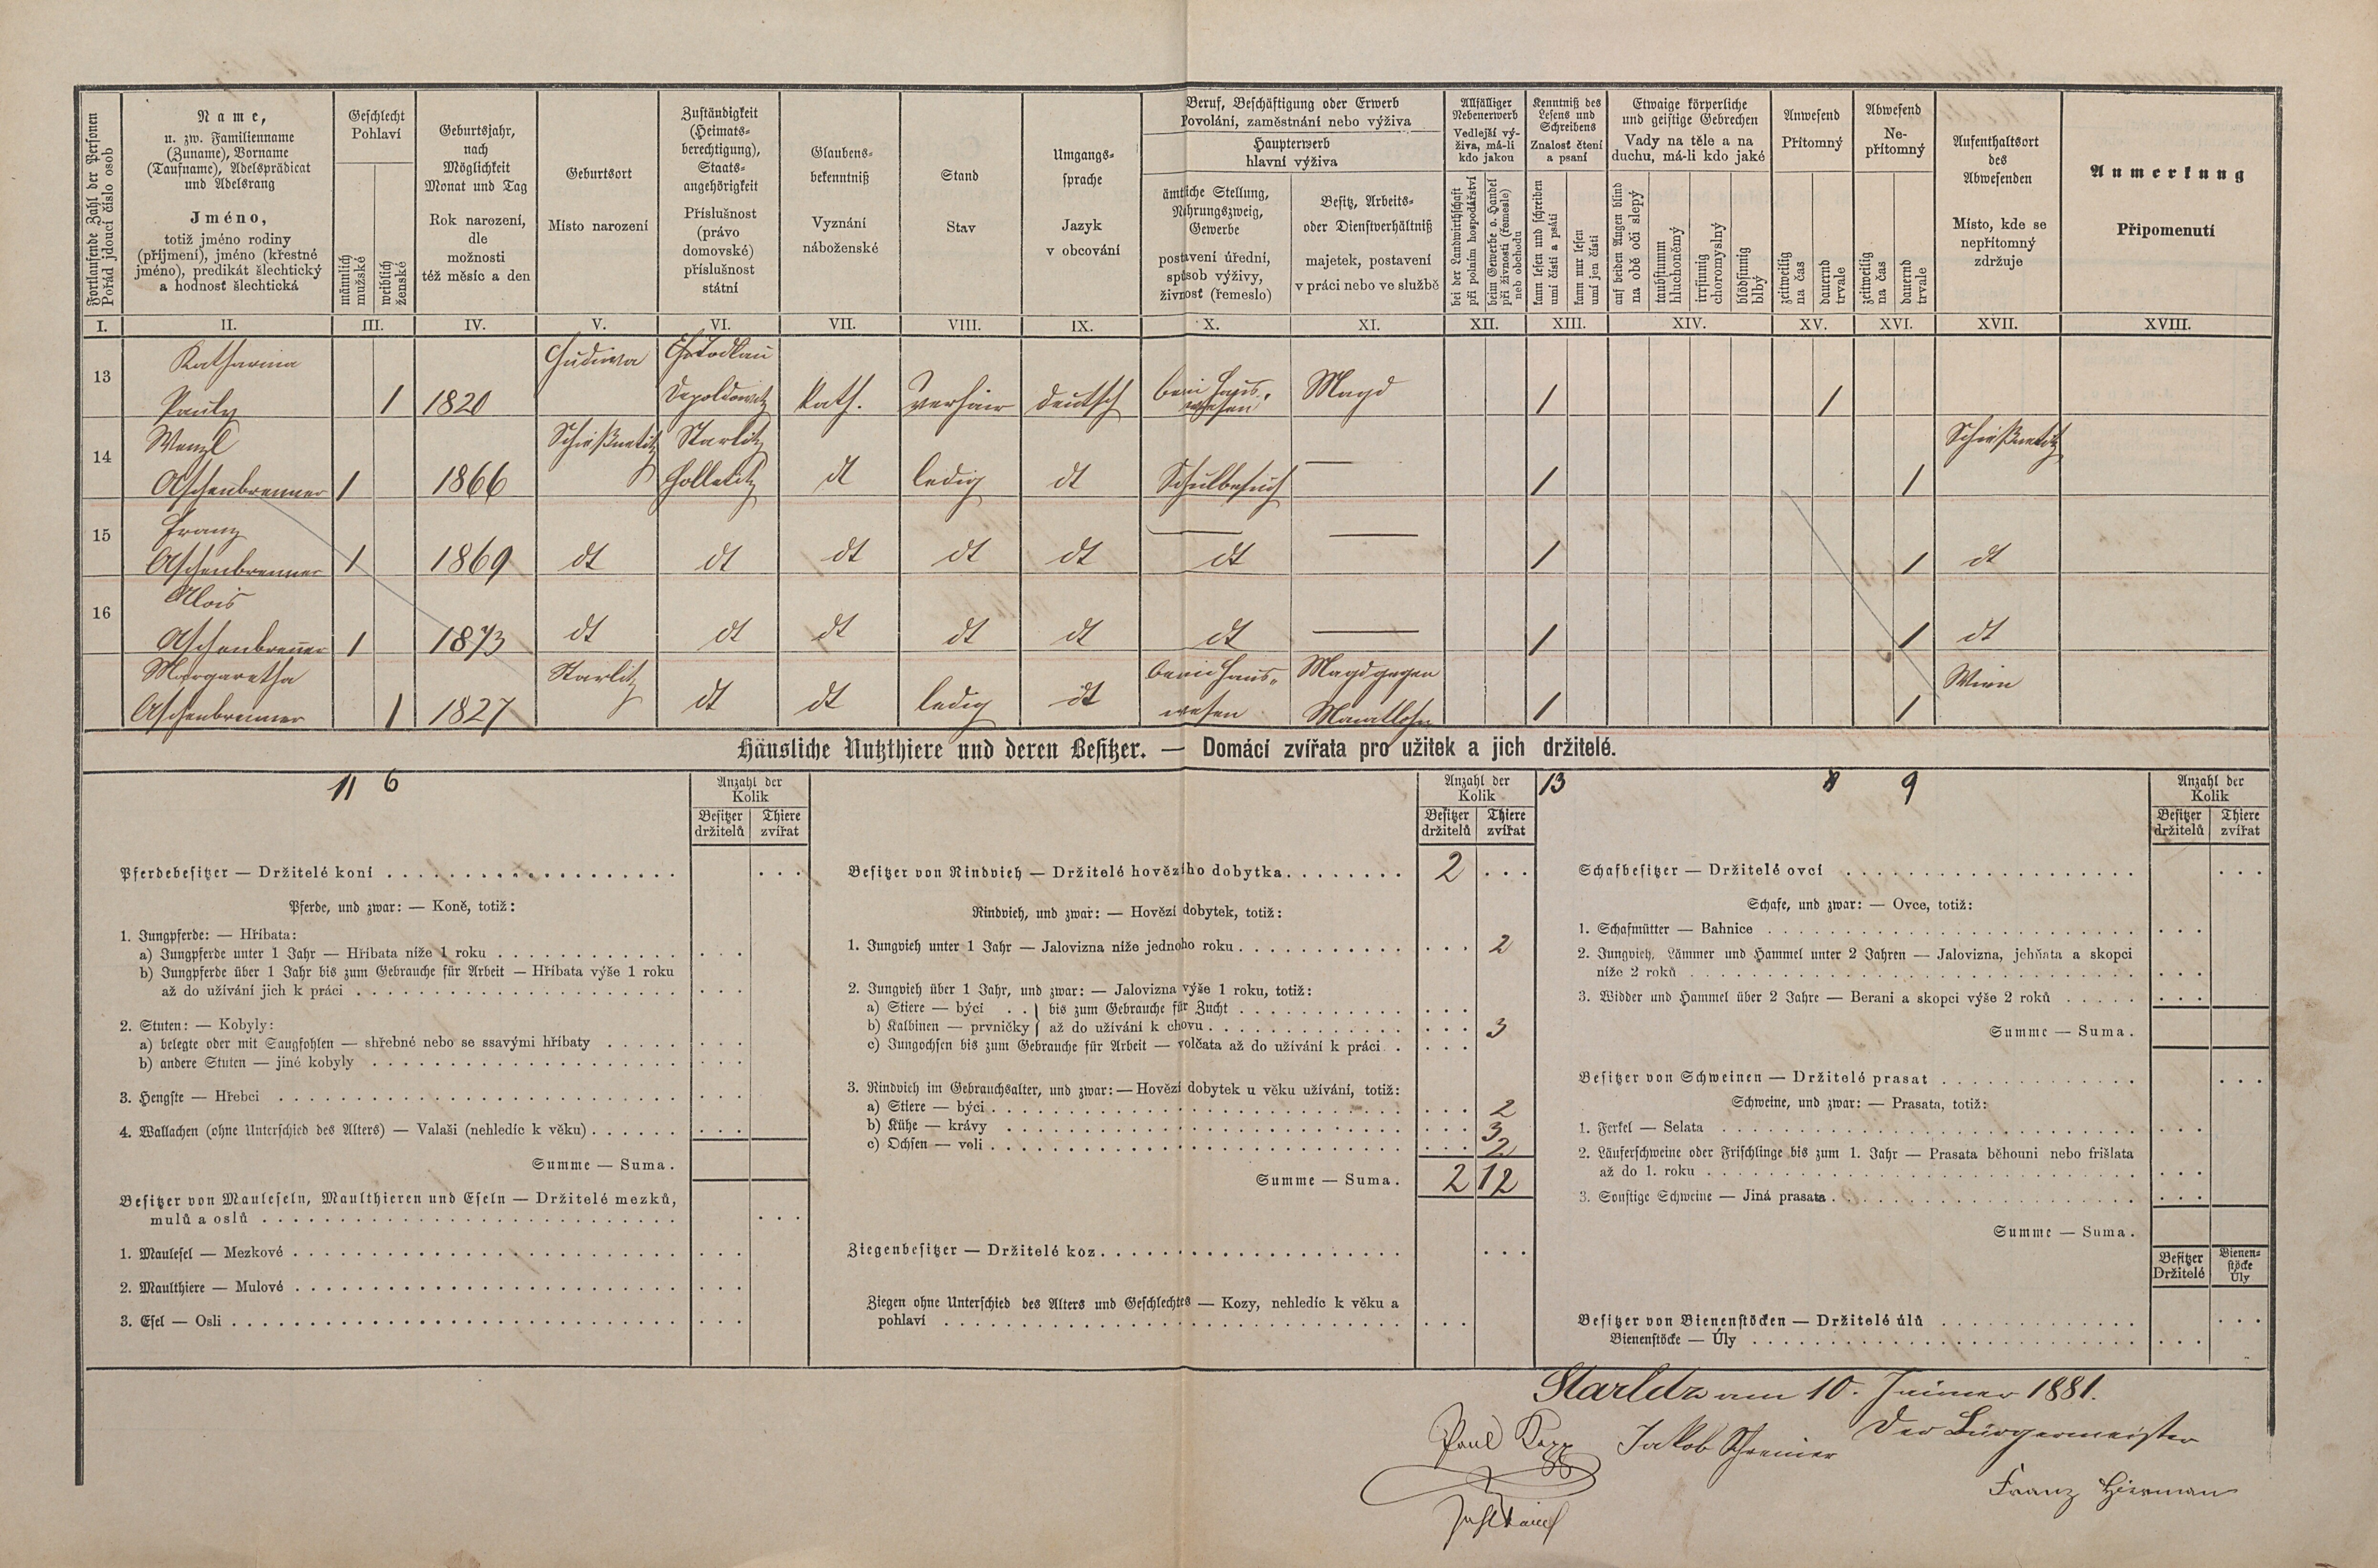 Fortlaufende Zahl der Personen
Pořád jdoucí číslo osob
Name,
u. zw. Familienname
(Zuname), Vorname
(Taufname), Adelsprädicat
und Adelsrang
Jméno,
totiž jméno rodiny
(příjmení), jméno (křestné
jméno), predikát šlechtický
a hodnost šlechtická
Geschlecht
Pohlaví
männlich
mužské
weiblich
ženské
Geburtsjahr,
nach
Möglichkeit
Monat und Tag
Rok narození,
dle
možnosti
též měsíc a den
Geburtsort
Místo narození
Zuständigkeit
(Heimats-
berechtigung),
Staats-
angehörigkeit
Příslušnost
(právo
domovské)
příslušnost
státní
Glaubens-
bekenntniß
Vyznání
náboženské
Stand
Stav
Umgangs-
sprache
Jazyk
v obcování
Beruf, Beschäftigung oder Erwerb
Povolání, zaměstnání nebo výživa
Haupterwerb
hlavní výživa
ämtliche Stellung,
Nahrungszweig,
Gewerbe
postavení úřední,
spůsob výživy,
živnost (řemeslo)
Besitz, Arbeits-
oder Dienstverhältniß
majetek, postavení
v práci nebo ve službě
Allfälliger
Nebenerwerb
Vedlejší vý-
živa, má-li
kdo jakou
bei der Landwirthschaft
při polním hospodářství
beim Gewerbe o. Handel
při živnosti (řemesle)
neb obchodu
Kenntniß des
Lesens und
Schreibens
Znalost čtení
a psaní
kann lesen und schreiben
umí čísti a psáti
kann nur lesen
umí jen čísti
Etwaige körperliche
und geistige Gebrechen
Vady na těle a na
duchu, má-li kdo jaké
auf beiden Augen blind
na obě oči slepý
taubstumm
hluchoněmý
irrsinnig
choromyslný
blödsinnig
blbý
Anwesend
Přítomný
zeitweilig
na čas
dauernd
trvale
Abwesend
Ne-
přítomný
zeitweilig
na čas
dauernd
trvale
Aufenthaltsort
des
Abwesenden
Místo, kde se
nepřítomný
zdržuje
Anmerkung
Připomenutí
I. II. III. IV. V. VI. VII. VIII. IX. X. XI. XII. XIII. XIV. XV. XVI. XVII. XVIII.
Katharina
13 Pauly 1 1820 Kath. deutsch Magd 1 1
Wenzl Starlitz
14 Aschenbrenner 1 1866 Holletitz dt ledig dt Schulbesuch — 1 1
Franz
15 Aschenbrenner 1 1869 dt dt dt dt dt dt — 1 1 dt
Alois
16 Aschenbrenner 1 1873 dt dt dt dt dt dt — 1 1 dt
Margaretha Starlitz beim Haus- Magd gegen Wien
Aschenbrenner 1 1827 dt dt ledig dt wesen 1 1
Häusliche Nutzthiere und deren Besitzer. — Domácí zvířata pro užitek a jich držitelé.
11 6
Anzahl der
Kolik
Besitzer
držitelů
Thiere
zvířat
Pferdebesitzer — Držitelé koní
Pferde, und zwar: — Koně, totiž:
1. Jungpferde: — Hříbata:
a) Jungpferde unter 1 Jahr — Hříbata níže 1 roku
b) Jungpferde über 1 Jahr bis zum Gebrauche für Arbeit — Hříbata výše 1 roku
až do užívání jich k práci
2. Stuten: — Kobyly:
a) belegte oder mit Saugfohlen — shřebné nebo se ssavými hříbaty
b) andere Stuten — jiné kobyly
3. Hengste — Hřebci
4. Wallachen (ohne Unterschied des Alters) — Valaši (nehledíc k věku)
Summe — Suma.
Besitzer von Mauleseln, Maulthieren und Eseln — Držitelé mezků,
mulů a oslů
1. Maulesel — Mezkové
2. Maulthiere — Mulové
3. Esel — Osli
Anzahl der
Kolik
Besitzer
držitelů
Thiere
zvířat
Besitzer von Rindvieh — Držitelé hovězího dobytka 2
Rindvieh, und zwar: — Hovězí dobytek, totiž:
1. Jungvieh unter 1 Jahr — Jalovizna níže jednoho roku 2
2. Jungvieh über 1 Jahr, und zwar: — Jalovizna výše 1 roku, totiž:
a) Stiere — býci . . } bis zum Gebrauche für Zucht
b) Kalbinen — prvničky } až do užívání k chovu 3
c) Jungochsen bis zum Gebrauche für Arbeit — volčata až do užívání k práci
3. Rindvieh im Gebrauchsalter, und zwar: — Hovězí dobytek u věku užívání, totiž:
a) Stiere — býci 2
b) Kühe — krávy 3
c) Ochsen — voli 2
Summe — Suma. 2 12
Ziegenbesitzer — Držitelé koz
Ziegen ohne Unterschied des Alters und Geschlechtes — Kozy, nehledíc k věku a
pohlaví
13 9
Anzahl der
Kolik
Besitzer
držitelů
Thiere
zvířat
Schafbesitzer — Držitelé ovcí
Schafe, und zwar: — Ovce, totiž:
1. Schafmütter — Bahnice
2. Jungvieh, Lämmer und Hammel unter 2 Jahren — Jalovizna, jehňata a skopci
níže 2 roků
3. Widder und Hammel über 2 Jahre — Berani a skopci výše 2 roků
Summe — Suma.
Besitzer von Schweinen — Držitelé prasat
Schweine, und zwar: — Prasata, totiž:
1. Ferkel — Selata
2. Läuferschweine oder Frischlinge bis zum 1. Jahr — Prasata běhouni nebo frišlata
až do 1. roku
3. Sonstige Schweine — Jiná prasata
Summe — Suma.
Besitzer
Držitelé
Bienen-
stöcke
Úly
Besitzer von Bienenstöcken — Držitelé úlů
Bienenstöcke — Úly
am 10. Jänner 1881.
Der Bürgermeister
Paul Jakob Schreiner
Franz